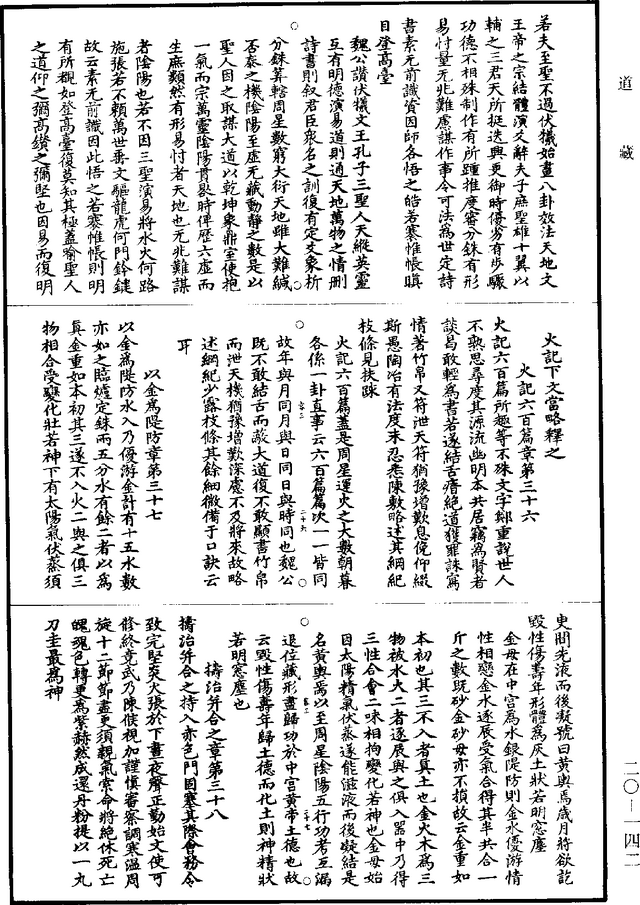 若夫至聖不過伏犧始畫八卦效法天地文
王帝之宗結體演爻辭夫子庶聖雄十翼以
輔之三君天所挺迭興更御時優劣有步驟
功德不相殊制作有所踵推度審分銖有形
易忖量无兆難慮謀作事令可法為世定詩
書素无前識資因師各悟之皓若褰帷帳瞋
目登高臺
魏公讚伏犧文王孔子三聖人天縱英靈
互有明德演易道則通天地萬物之情刪
詩書則叙君臣衆名之訓復有定爻象析
分銖筭轄周星數窮大衍天地雖大難緘
否泰之機陰陽至虛无藏動靜之數是以
聖人因之取謀大道以乾坤象鼎室使抱
一氣而宗萬靈陰陽貫晷時俾歷六虛而
生庶類然有形易忖者天地也无兆難謀
者陰陽也若不因三聖演易將水火何路
施張若不頼萬世垂文驅龍虎何門鈐鍵
故云素无前識因此悟之若褰帷帳則明
有所覩如登高臺復莫知其極蓋喻聖人
之道仰之彌高鑚之彌堅也因易而復明
火記下文當略釋之
火記六百篇章第三十六
火記六百篇所趣等不殊文字鄭重說世人
不熟思尋度其源流幽明本共居竊為賢者
談曷敢輕為書若遂結舌瘖絶道獲罪誅寫
情著竹帛又符泄天符猶豫增歎息俛仰綴
斯愚陶冶有法度未忍悉陳敷略述其綱紀
枝條見扶踈
火記六百篇蓋是周星運火之大數朝暮
各係一卦直事云六百篇篇次一一皆同
故年與月同月與日同日與時同也魏公
既不敢結舌而蔽大道復不敢顯書竹帛
而泄天機猶豫增歎深慮不及將來故略
述綱紀少露枝條其餘細微備于口訣云
耳
以金為隄防章第三十七
以金為隄防水入乃優游金計有十五水數
亦如之臨爐定銖兩五分水有餘二者以為
眞金重如本初其三遂不入火二與之俱三
物相合受變化狀若神下有太陽氣伏蒸須
臾間先液而後凝號曰黃輿焉歲月將欲訖
毀性傷壽年形體為灰土狀若明窓塵
金母在中宮為水銀隄防則金水優游情
性相戀金水逐辰受氣合得其半共合一
斤之數既砂金砂母亦不損故云金重如
本初也其三不入者眞土也金火木為三
物被水火二者逐辰與之俱入器中乃得
三性合會二味相拘變化若神也金母始
因太陽精氣伏蒸遂能滋液而後凝結是
名黃輿焉以至周星陰陽五行功考互漏
退位藏形盡歸功於中宮黃帝土德也故
云毀性傷壽年歸土德而化土則神精狀
若明窓塵也
擣治并合之章第三十八
擣治并合之持入赤色門固塞其際會務令
致完堅炎火張於下晝夜聲正勤始文使可
修終竟武乃陳候視加謹慎審察調寒溫周
旋十二節節盡更須親氣索命將絶休死亡
魄魂色轉更為紫赫然成還丹粉提以一丸
刀圭最為神
道藏
二〇—一四二